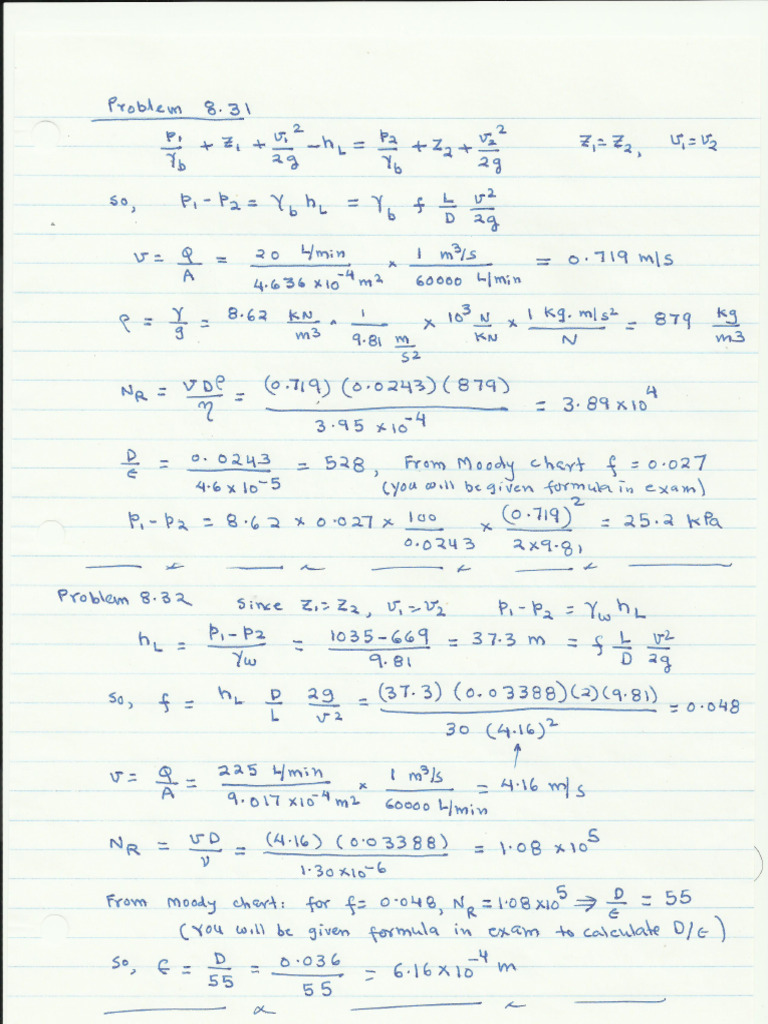 Problem 8.31
p₁/γ_b + z₁ + v₁²/2g - h_L = p₂/γ_b + z₂ + v₂²/2g    z₁=z₂, v₁=v₂
so, p₁-p₂ = γ_b h_L = γ_b f L/D v²/2g
v = Q/A = 20 L/min / 4.636×10⁻⁴ m² × 1 m³/s / 60000 L/min = 0.719 m/s
ρ = γ/g = 8.62 KN/m³ · 1/9.81 m/s² × 10³ N/KN × 1 kg.m/s² / N = 879 kg/m³
N_R = vDρ/η = (0.719)(0.0243)(879) / 3.95×10⁻⁴ = 3.89×10⁴
D/ϵ = 0.0243 / 4.6×10⁻⁵ = 528, From Moody chart f = 0.027
(you will be given formula in exam)
p₁-p₂ = 8.62 × 0.027 × 100/0.0243 × (0.719)²/2×9.81 = 25.2 kPa
Problem 8.32 Since z₁=z₂, v₁=v₂ p₁-p₂ = γ_w h_L
h_L = p₁-p₂/γ_w = 1035-669/9.81 = 37.3 m = f L/D v²/2g
so, f = h_L D/L 2g/v² = (37.3)(0.03388)(2)(9.81) / 30 (4.16)² = 0.048
v = Q/A = 225 L/min / 9.017×10⁻⁴ m² × 1 m³/s / 60000 L/min = 4.16 m/s
N_R = vD/ν = (4.16)(0.03388) / 1.30×10⁻⁶ = 1.08×10⁵
From moody chart: for f= 0.048, N_R = 1.08×10⁵ ⇒ D/ϵ = 55
(you will be given formula in exam to calculate D/ϵ)
So, ϵ = D/55 = 0.036/55 = 6.16×10⁻⁴ m